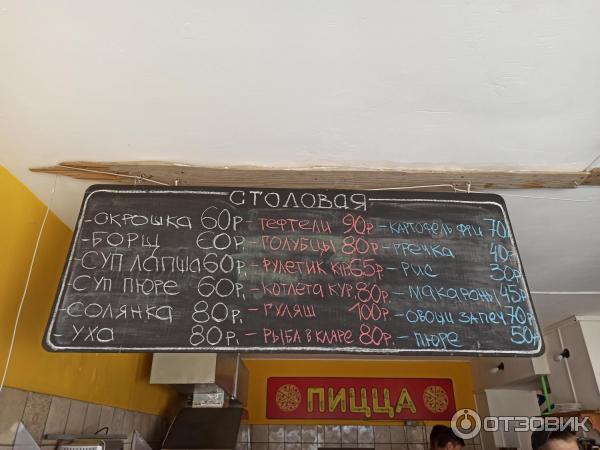 СТОЛОВАЯ
-ОКРОШКА 60р.
-БОРЩ 60р.
-СУП ЛАПША 60р.
-СУП ПЮРЕ 60р.
-СОЛЯНКА 80р.
УХА 80р.
-ТЕФТЕЛИ 90р.
-ГОЛУБЦЫ 80р.
-РУЛЕТИК КУР 65р.
-КОТЛЕТА КУР. 80р.
-ГУЛЯШ 100р.
-РЫБА В КЛЯРЕ 80р.
-КАРТОФЕЛЬ ФРИ 70р.
-ГРЕЧКА 40р.
-РИС 30р.
-МАКАРОНЫ 45р.
-ОВОЩИ ЗАПЕЧ 70р.
-ПЮРЕ 50р.
ПИЦЦА
ОТЗОВИК